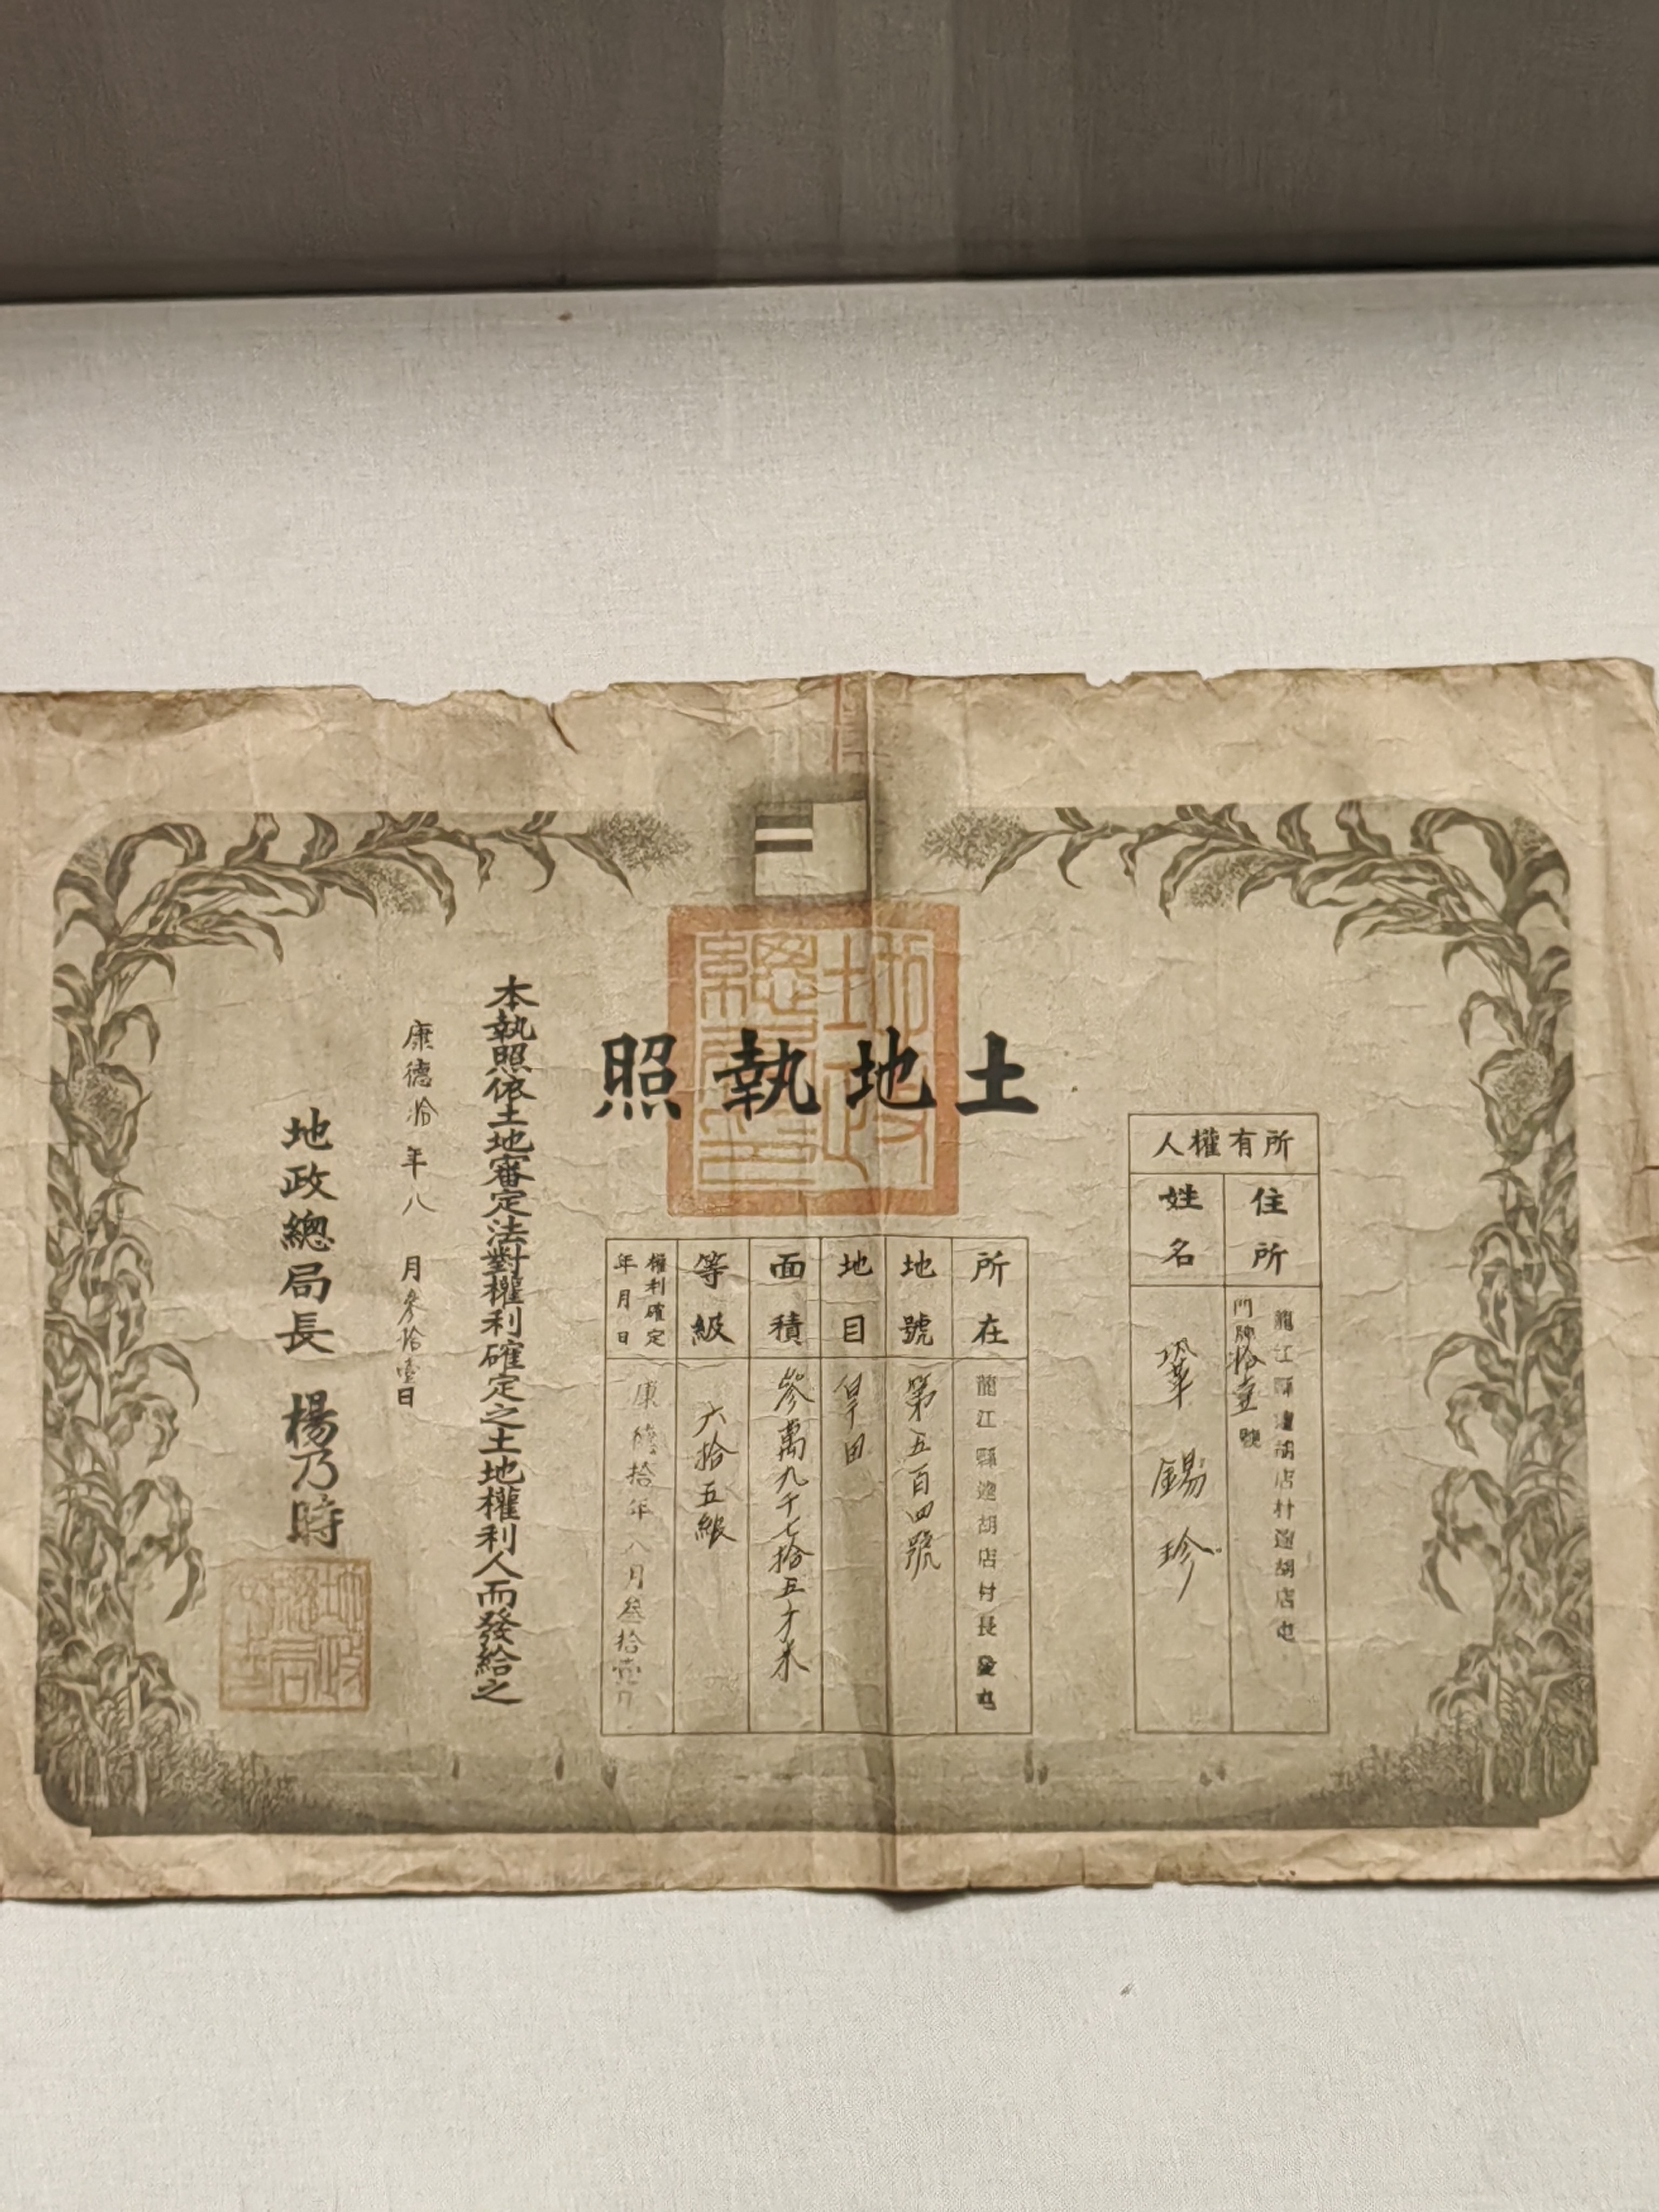 土地執照
所有權人
住所
龍江縣邀胡店村邀胡店屯
門牌拾壹號
姓名
鞏錫珍
所在
龍江縣邀胡店村長發屯
地號
第五百四號
地目
旱田
面積
參萬九千七拾五方米
等級
六拾五級
權利確定
年月日
康德拾年八月叁拾壹日
本執照依土地審定法對權利確定之土地權利人而發給之
康德拾年八月參拾壹日
地政總局長 楊乃時